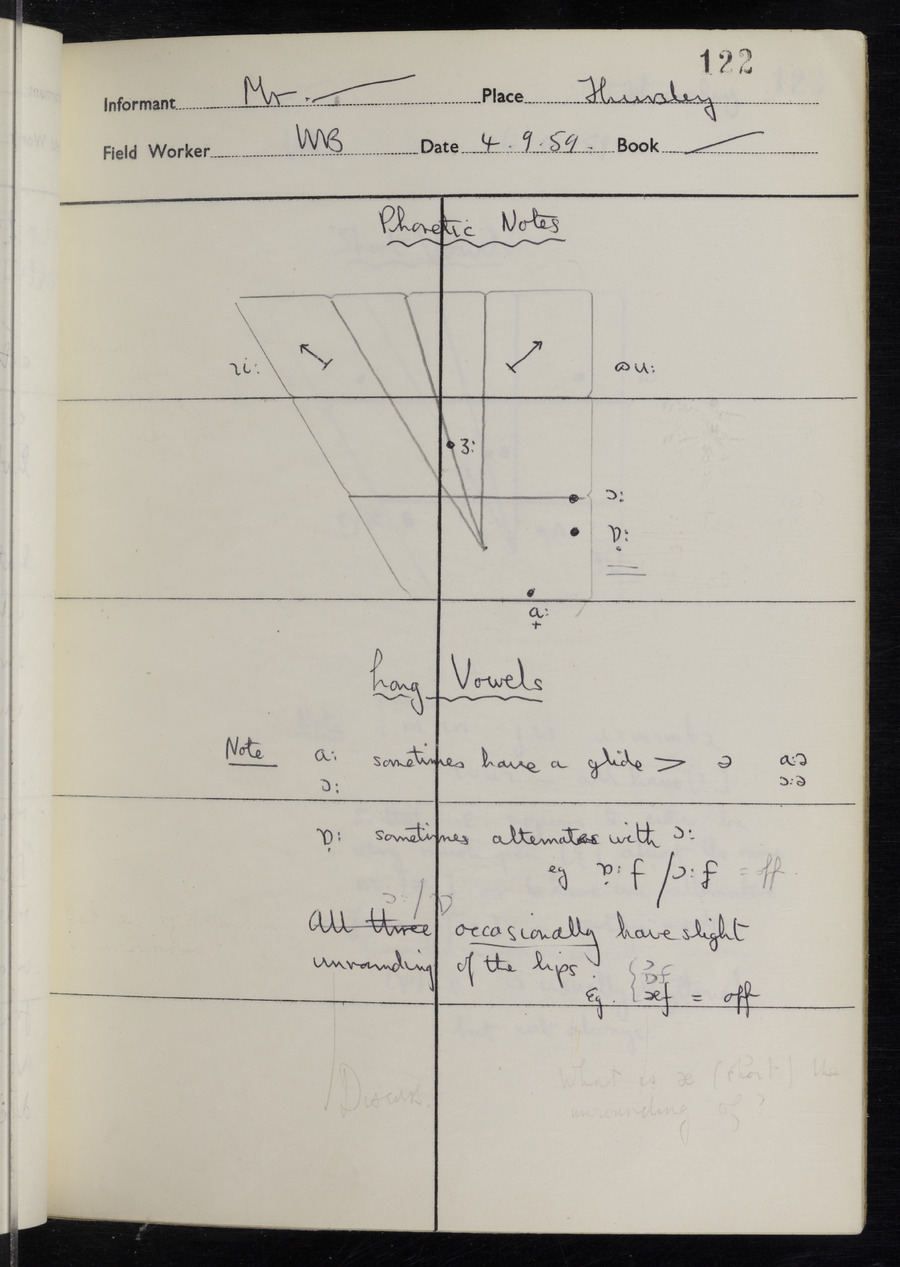 122
Informant Mr. Place Thursley
Field Worker WB Date 4.9.59. Book
Phonetic Notes
ɿi: ɷu:
ɜ:
ɔ:
ɒ̣:
a:
+
Long Vowels
Note a: sometimes have a glide > ə a:ə
ɔ: ɔ:ə
ɒ̣: sometimes alternates with ɔ:
eg ɒ̣:f / ɔ:f = off.
ɔ: / ɒ
All three occasionally have slight
unrounding of the lips.
Eg. = off
Discuss.
What is æ (short) the
unrounding of?